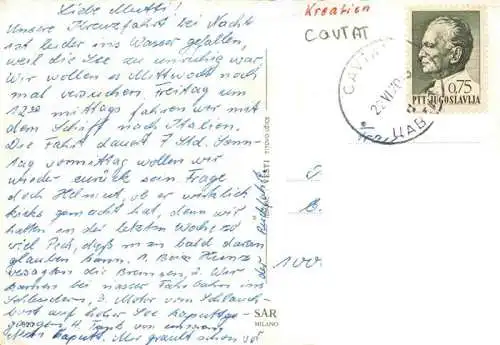 Liebe Mutti!
Unsere Kreuzfahrt bei Nacht
ist leider ins Wasser gefallen,
weil die See zu unruhig war.
Wir wollen es Mittwoch noch
mal versuchen. Freitag um
12 mittags fahren wir mit
dem Schiff nach Italien.
Die Fahrt dauert 7 Std. Sonn-
tag vormittag wollen wir
wieder zurück sein. Frage
doch Helmut, ob er wirklich
gemacht hat, denn wir
hatten in der letzten Woche so
viel Pech, daß man bald daran
glauben kann. 1. Heinz
versagten die Bremsen, 2. Wir
kamen bei nasser Fahrbahn ins
Schleudern, 3. Motor vom Schlauch-
boot auf hoher See kaputtge-
gangen, 4. Tank von
kaputt. Mir graut schon vor
der Rückfahrt
Kroatien
CAVTAT
CAVTAT
0,75
PTT JUGOSLAVIJA
100.
SAR
MILANO